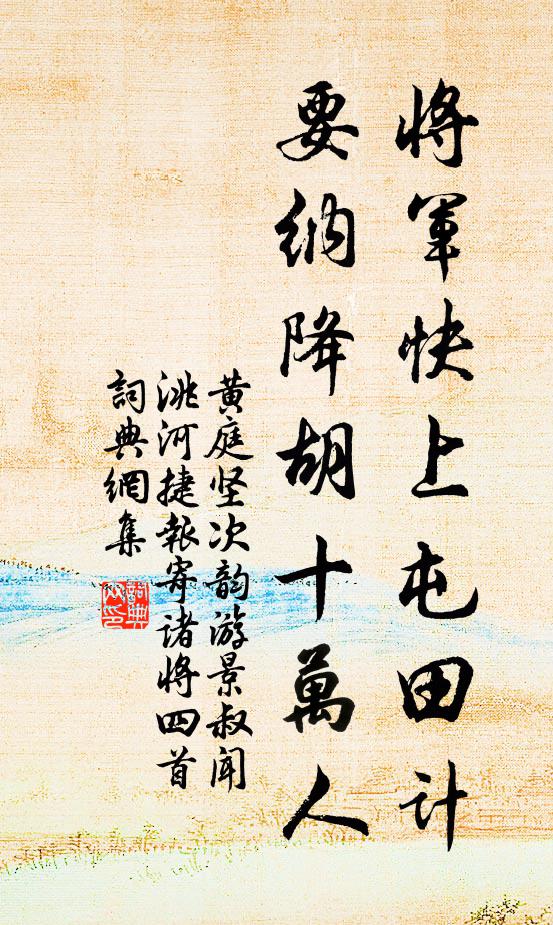 將軍快上屯田计
要纳降胡十萬人
黄庭坚次韵游景叔闻
洮河捷報寄诸将四首
詞典網集